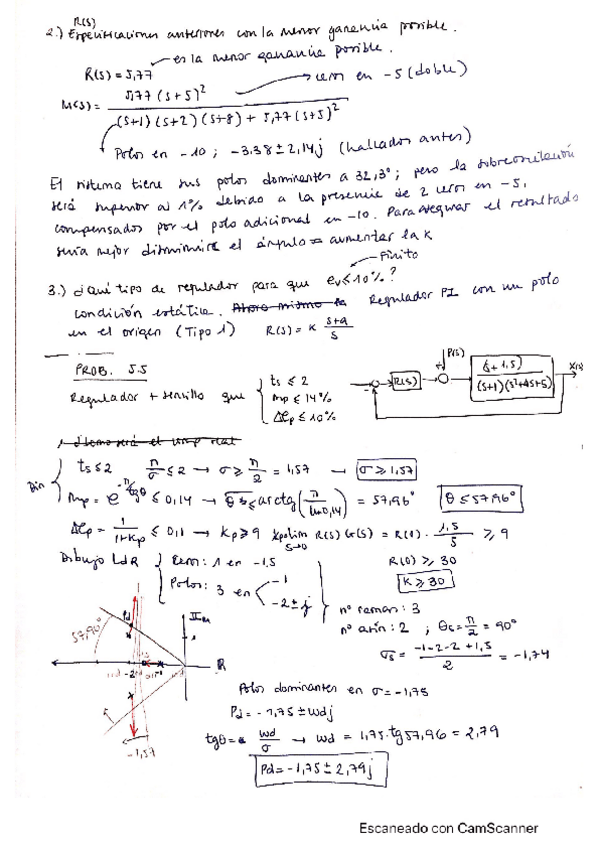 R(s)
2.) Especificaciones anteriores con la menor ganancia posible.
R(s) = 5,77
es la menor ganancia posible.
M(s) = 5,77 (s+5)² / (s+1)(s+2)(s+8) + 5,77(s+5)²
ceros en -5 (doble)
Polos en -10 ; -3.38 ± 2,14j (hallados antes)
El sistema tiene sus polos dominantes a 32,3°; pero la sobreoscilación
será superior al 1% debido a la presencia de 2 ceros en -5,
compensados por el polo adicional en -10. Para asegurar el resultado
sería mejor disminuir el ángulo = aumentar la K
finito
3.) ¿Qué tipo de regulador para que ev ≤ 10%?
condición estática. Regulador PI con un polo
en el origen (Tipo 1) R(s) = K s+a / s
PROB. 5.5
Regulador + sencillo que
ts ≤ 2
Mp ≤ 14%
Δep ≤ 10%
P(s)
R(s)
(s+1,5) / (s+1)(s²+4s+5)
X(s)
Din
ts ≤ 2 π/σ ≤ 2 → σ ≥ π/2 = 1,57 → σ ≥ 1,57
Mp = e^-π/tgθ ≤ 0,14 → θ ≤ arctg(π/ln 0,14) = 57,96° θ ≤ 57,96°
Δep = 1/1+Kp ≤ 0,1 → Kp ≥ 9 Kp = lim s→0 R(s) G(s) = R(0) · 1,5/5 ≥ 9
R(0) ≥ 30
K ≥ 30
Dibujo LdR
Ceros: 1 en -1.5
Polos: 3 en -1
-2 ± j
nº ramas: 3
nº asín: 2 ; θs = π/2 = 90°
σs = -1-2-2+1,5 / 2 = -1,74
57,90°
Pd
Im
R
-2
-1,57
Polos dominantes en σ = -1,75
Pd = -1,75 ± wdj
tgθ = wd/σ → wd = 1,75·tg 57,96 = 2,79
Pd = -1,75 ± 2,79j
Escaneado con CamScanner